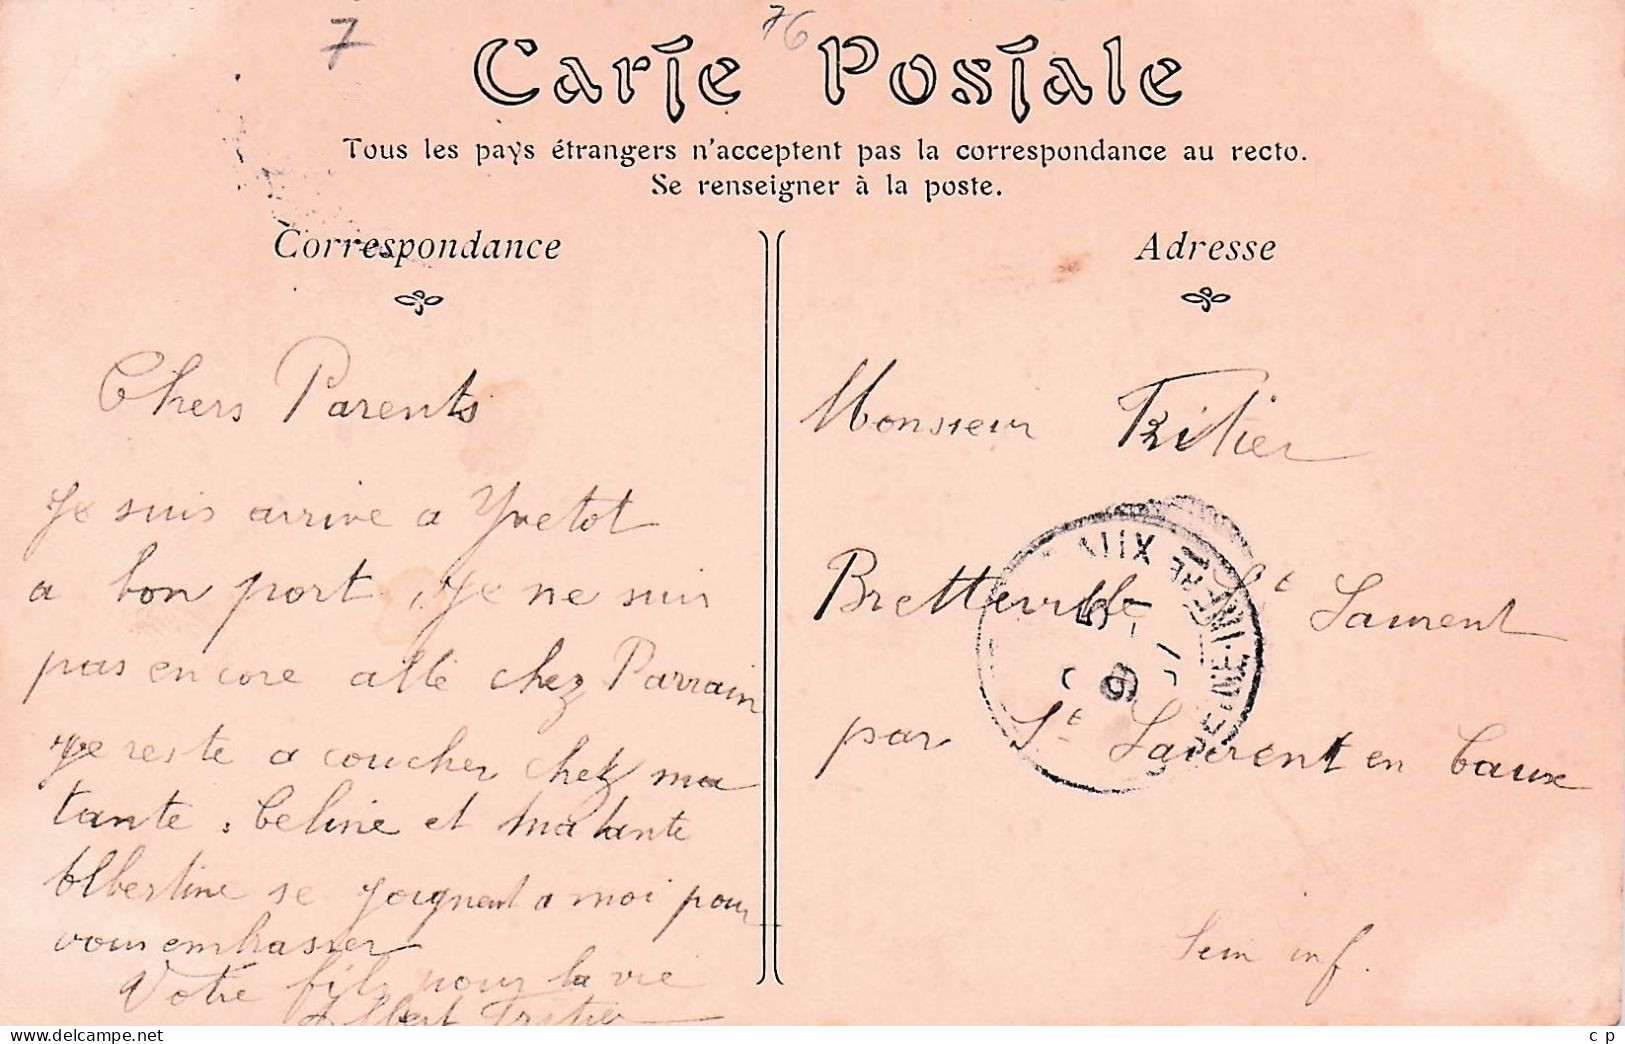 7
76
Carte Postale
Tous les pays étrangers n'acceptent pas la correspondance au recto.
Se renseigner à la poste.
Correspondance
Chers Parents
Je suis arrive a Yvetot
a bon port, Je ne suis
pas encore allé chez Parrain
Je reste a coucher chez ma
tante. Celine et ma tante
Albertine se joignent a moi pour
vous embrasser
Votre fils pour la vie
Albert Tritier
Adresse
Monsieur Tritier
Bretteville St Laurent
par St Laurent en Caux
Sein inf.
AUX
SEINE-INFRE
delcampe.net
c p